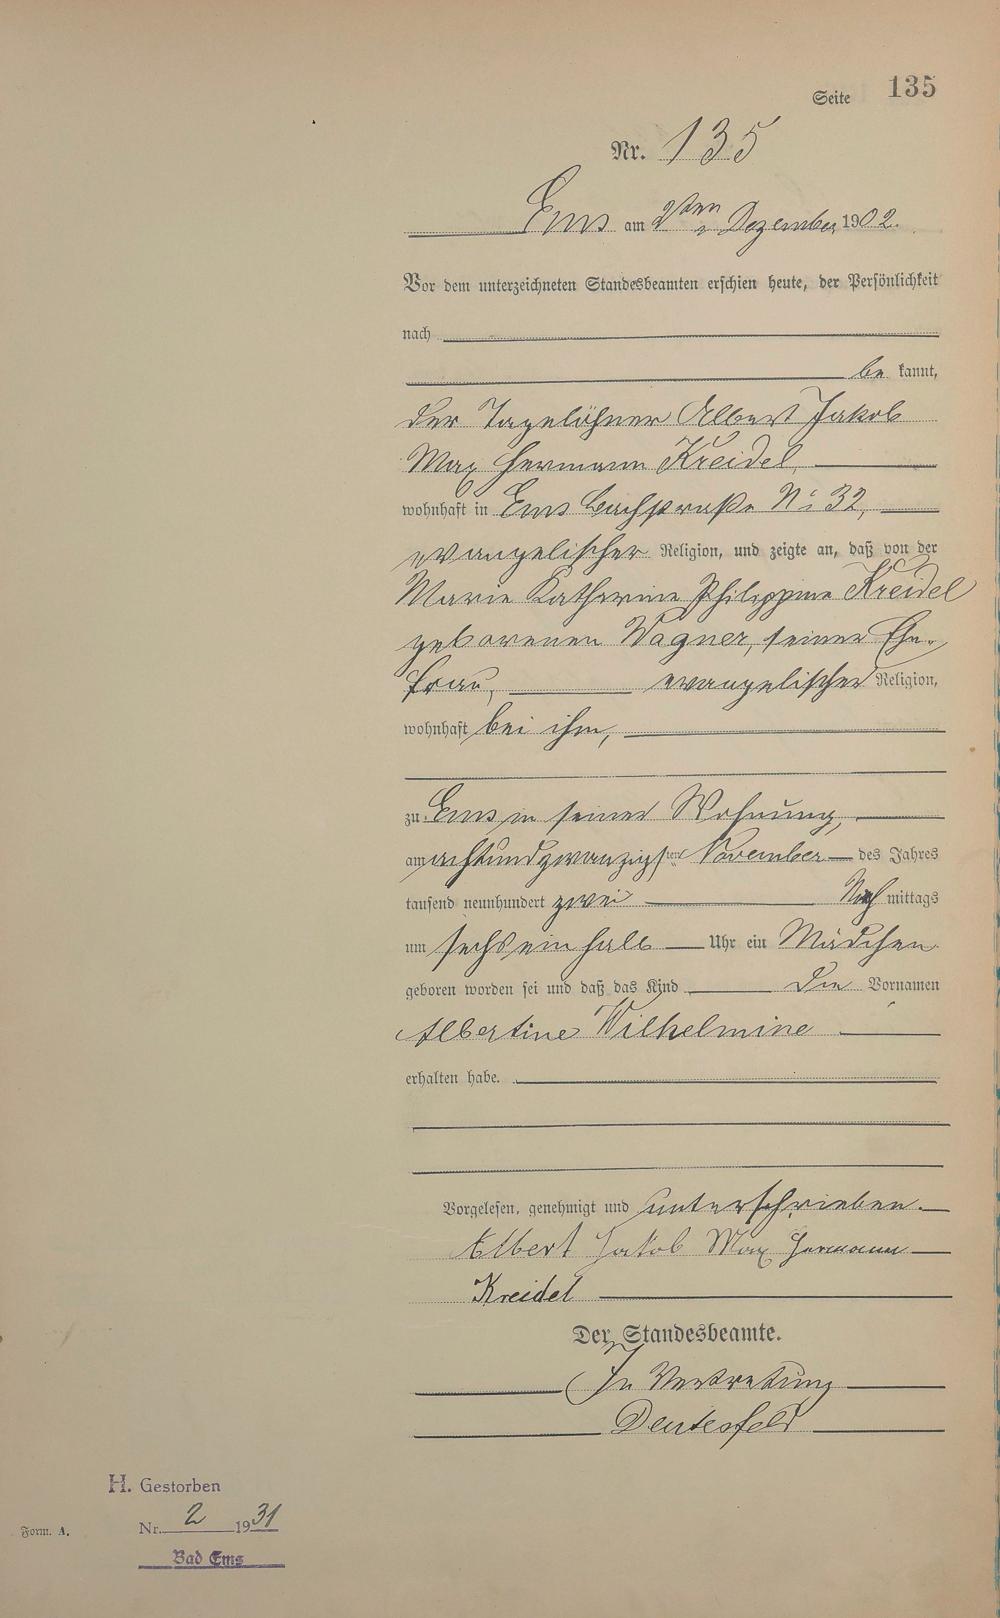 Seite 135
Nr. 135
Ems am 2ten Dezember 1902.
Vor dem unterzeichneten Standesbeamten erschien heute, der Persönlichkeit
nach
be kannt,
der Tagelöhner Albert Jakob
Max Hermann Kreidel,
wohnhaft in Ems Bachstraße No 32,
evangelischer Religion, und zeigte an, daß von der
Marie Katharine Philippine Kreidel
geborenen Wagner, seiner Ehe-
frau, evangelischer Religion,
wohnhaft bei ihm,
zu Ems in seiner Wohnung,
am achtundzwanzigsten November des Jahres
tausend neunhundert zwei Nach mittags
um sechs ein halb Uhr ein Mädchen
geboren worden sei und daß das Kind die Vornamen
Albertine Wilhelmine
erhalten habe.
Vorgelesen, genehmigt und unterschrieben.
Albert Jakob Max Hermann
Kreidel
Der Standesbeamte.
In Vertretung
H. Gestorben
Nr. 2 1931
Form. A.
Bad Ems